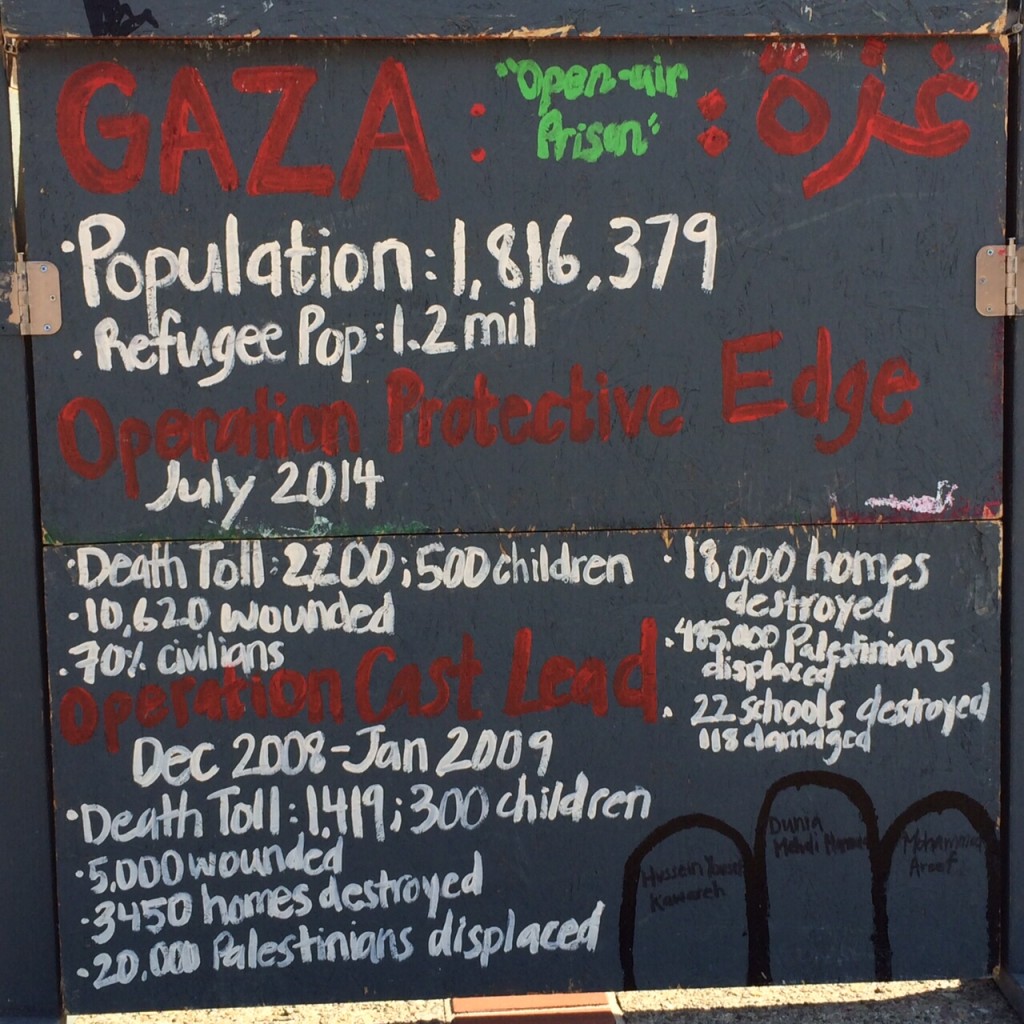 GAZA : "Open-air Prison" : غزة
· Population: 1,816,379
· Refugee Pop: 1.2 mil
Operation Protective Edge
July 2014
· Death Toll: 2,200; 500 children
· 10,620 wounded
· 70% civilians
· 18,000 homes
destroyed
· 485,000 Palestinians
displaced
· 22 schools destroyed
118 damaged
Operation Cast Lead
Dec 2008-Jan 2009
· Death Toll: 1,419; 300 children
· 5,000 wounded
· 3450 homes destroyed
· 20,000 Palestinians displaced
Hussein
Kawareh
Dunia
Mehdi
Areef